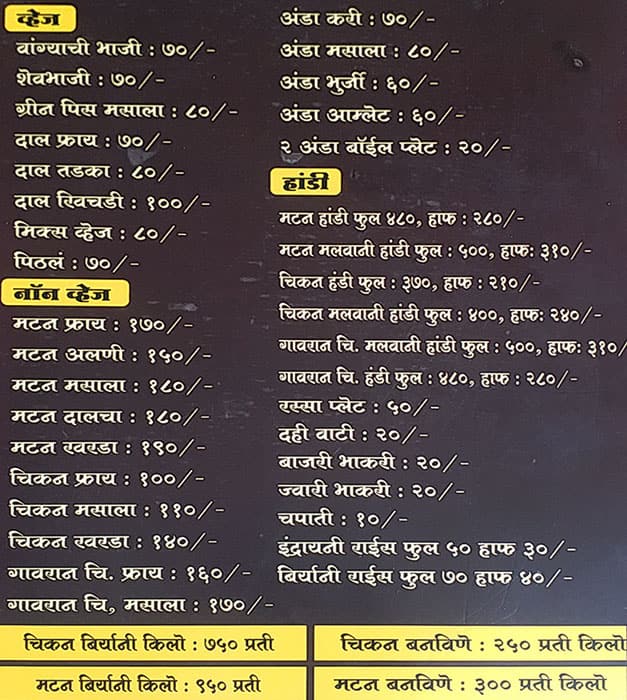 व्हेज
वांग्याची भाजी : ७०/-
शेवभाजी : ७०/-
ग्रीन पिस मसाला : ८०/-
दाल फ्राय : ७०/-
दाल तडका : ८०/-
दाल खिचडी : १००/-
मिक्स व्हेज : ८०/-
पिठलं : ७०/-
नॉन व्हेज
मटन फ्राय : १७०/-
मटन अळणी : १५०/-
मटन मसाला : १८०/-
मटन दालचा : १८०/-
मटन खरडा : १९०/-
चिकन फ्राय : १००/-
चिकन मसाला : ११०/-
चिकन खरडा : १४०/-
गावरान चि. फ्राय : १६०/-
गावरान चि, मसाला : १७०/-
अंडा करी : ७०/-
अंडा मसाला : ८०/-
अंडा भुर्जी : ६०/-
अंडा आम्लेट : ६०/-
२ अंडा बॉईल प्लेट : २०/-
हांडी
मटन हांडी फुल ४८०, हाफ : २८०/-
मटन मलवानी हांडी फुल : ५००, हाफ: ३१०/-
चिकन हंडी फुल : ३७०, हाफ : २१०/-
चिकन मलवानी हांडी फुल : ४००, हाफ: २४०/-
गावरान चि. मलवानी हांडी फुल : ५००, हाफ: ३१०/
गावरान चि. हंडी फुल : ४८०, हाफ : २८०/-
रस्सा प्लेट : ५०/-
दही वाटी : २०/-
बाजरी भाकरी : २०/-
ज्वारी भाकरी : २०/-
चपाती : १०/-
इंद्रायनी राईस फुल ५० हाफ ३०/-
बिर्यानी राईस फुल ७० हाफ ४०/-
चिकन बिर्यानी किलो : ७५० प्रती
चिकन बनविणे : २५० प्रती किलो
मटन बिर्यानी किलो : ९५० प्रती
मटन बनविणे : ३०० प्रती किलो